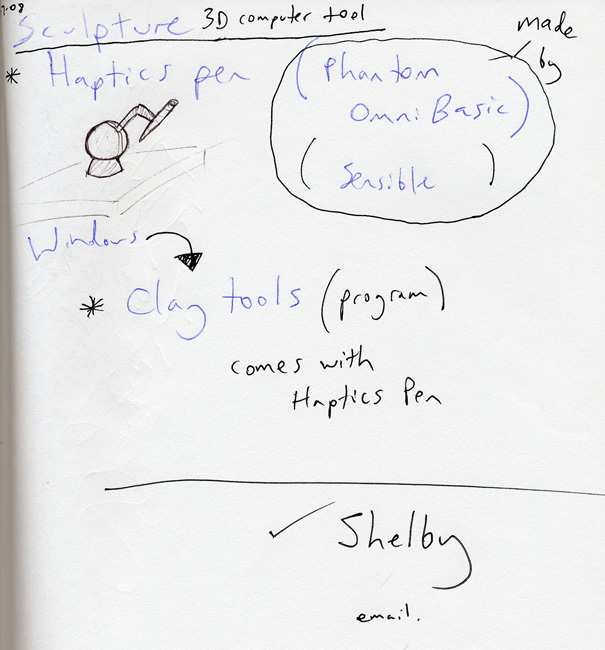 Sculpture 3D computer tool
made by
* Haptics pen
(Phantom
Omni Basic)
(Sensible)
Windows
* Clay tools (program)
comes with
Haptics Pen
✓ Shelby
email.